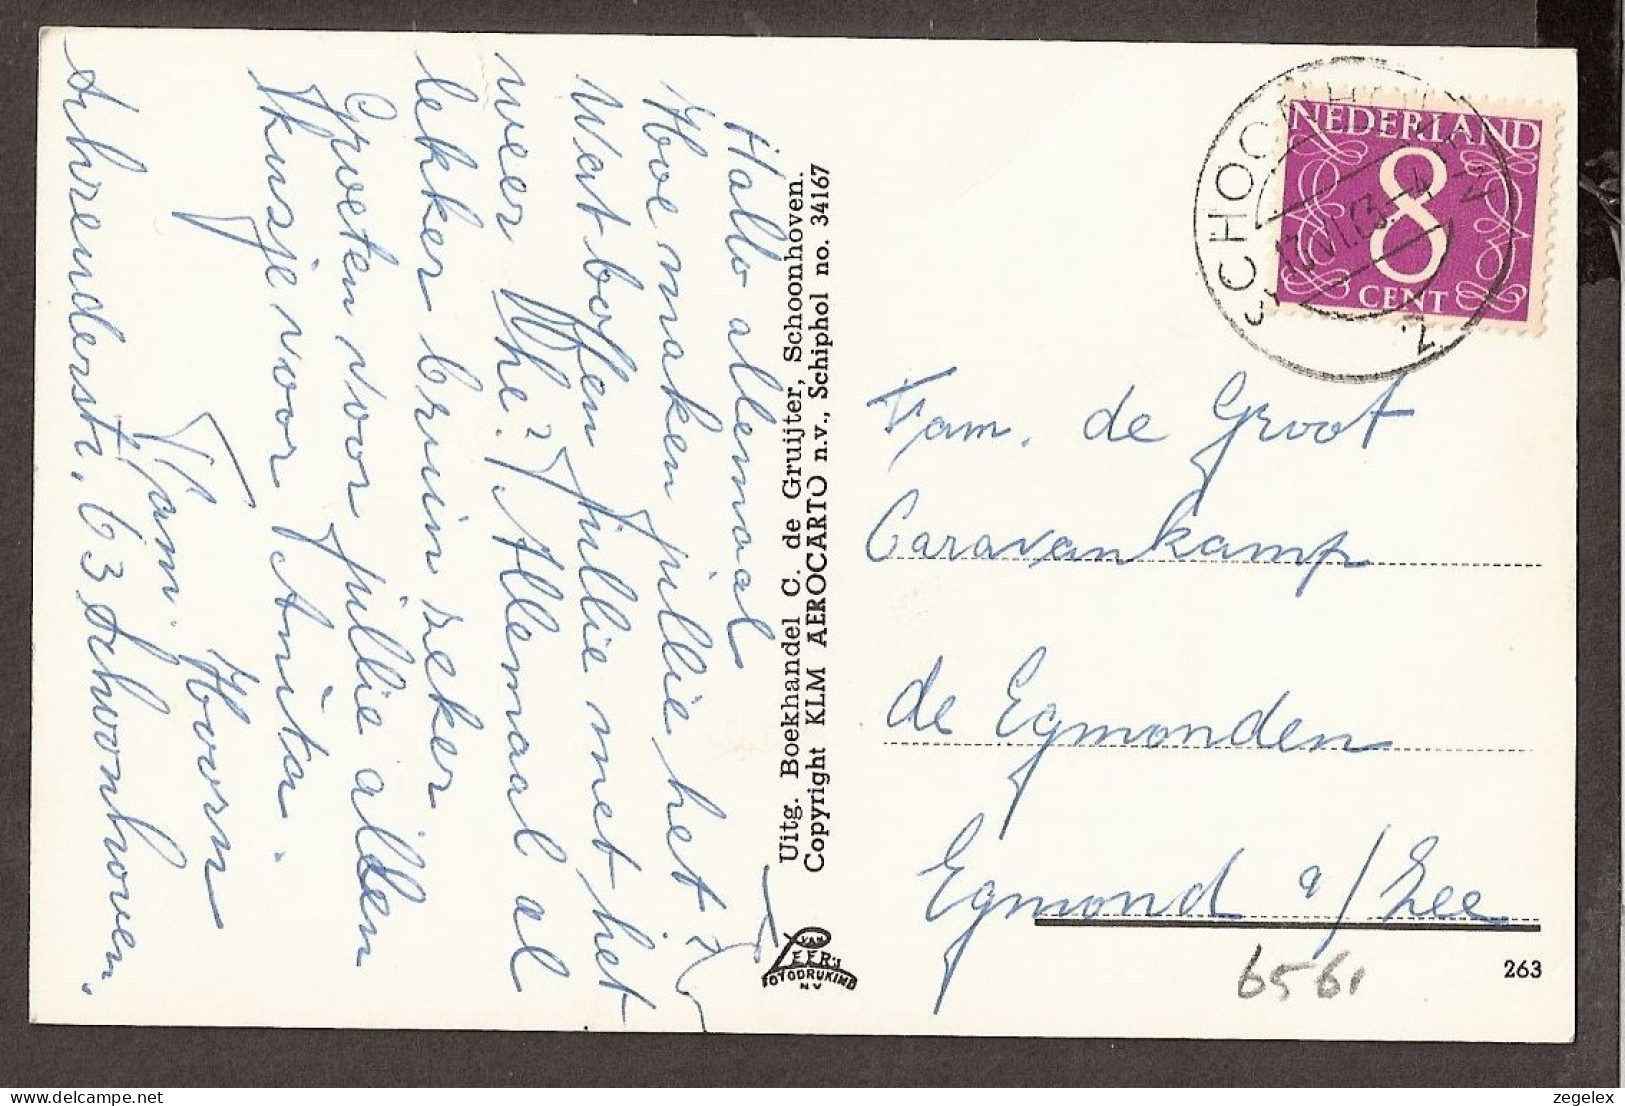 Hallo allemaal
Hoe maken jullie het?
Wat boffen jullie met het
weer he? Allemaal al
lekker bruin zeker
Groeten voor jullie allen
Kusje voor Anita.
Fam. Hoorn
Ahrenderstr. 63 Schoonhoven.
Uitg. Boekhandel C. de Gruijter, Schoonhoven.
Copyright KLM AEROCARTO n.v., Schiphol no. 34167
VAN
LEER'S
FOTODRUKIND
N V
NEDERLAND
8
CENT
SCHOONHOVEN
VI.63
Fam. de Groot
Caravankamp
de Egmonden
Egmond a/Zee
6561
263
zegelex.com